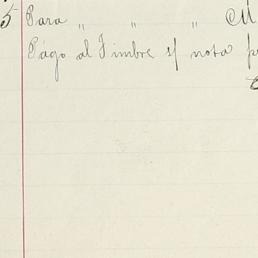 5 Para " " "
Pago al Timbre s/ nota